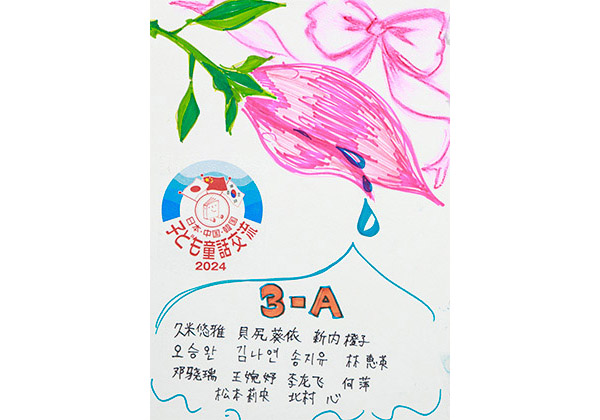 日本・中国・韓国
子ども童話交流
2024
3-A
久米悠雅 貝尻葵依 新内橙子
오승안 김나연 송지유 林恵英
邓骁瑞 王婉妤 李龙飞 何萍
松本莉央 北村心